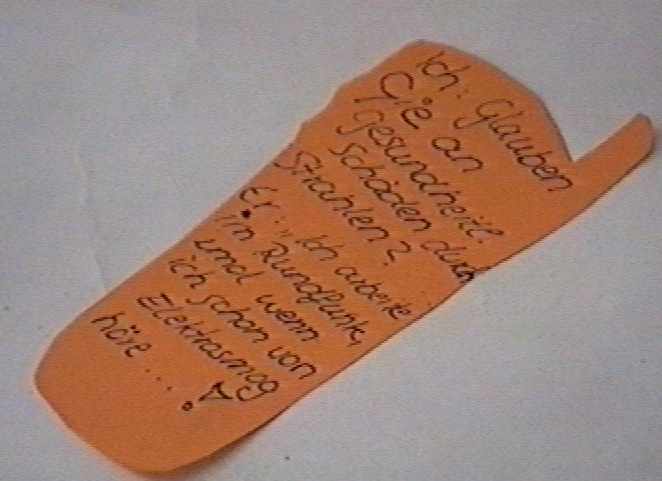 Ich: Glauben
Sie an
gesundheitl.
Schäden durch
Strahlen?
Er: „Ich arbeite
im Rundfunk,
und wenn
ich schon von
Elektrosmog
höre...!